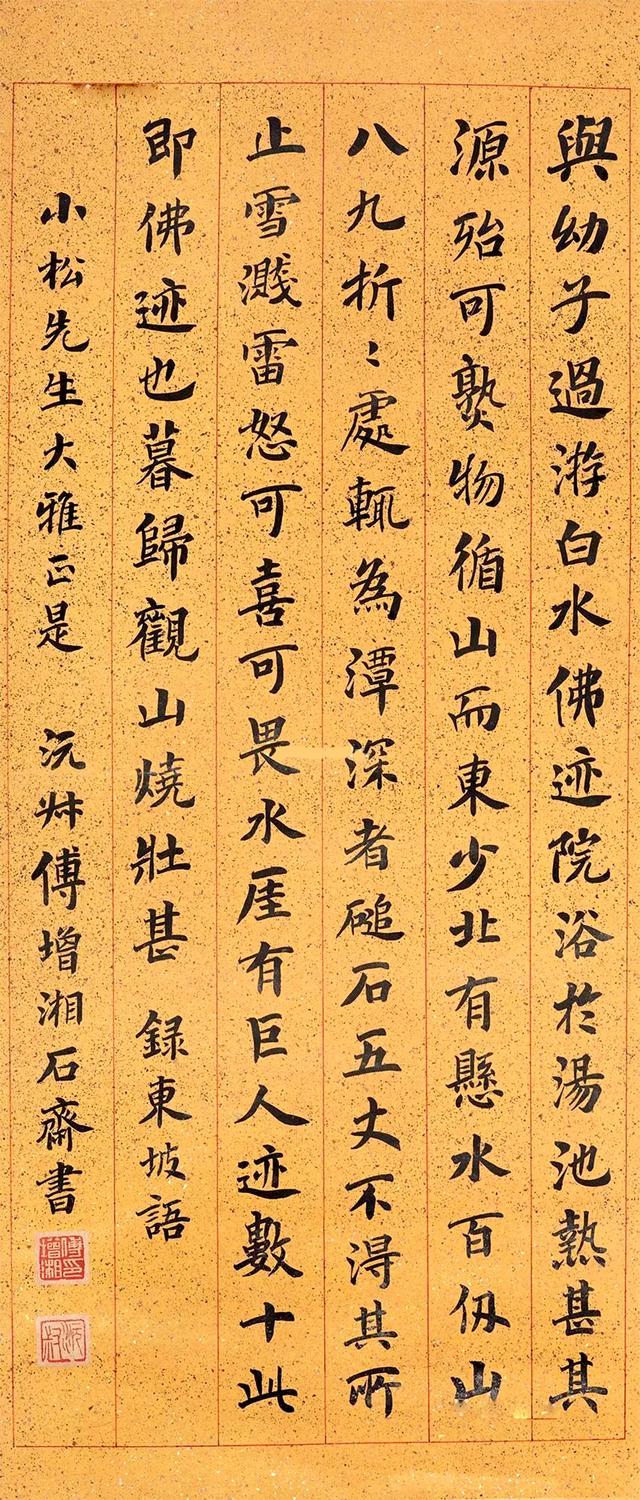 與幼子過游白水佛迹院浴於湯池熱甚其
源殆可熟物循山而東少北有懸水百仞山
八九折〻處輒為潭深者磓石五丈不得其所
止雪濺雷怒可喜可畏水厓有巨人迹數十此
即佛迹也暮歸觀山燒壯甚 録東坡語
小松先生大雅正是 沅叔傅增湘石齋書
傅增湘印
沅叔